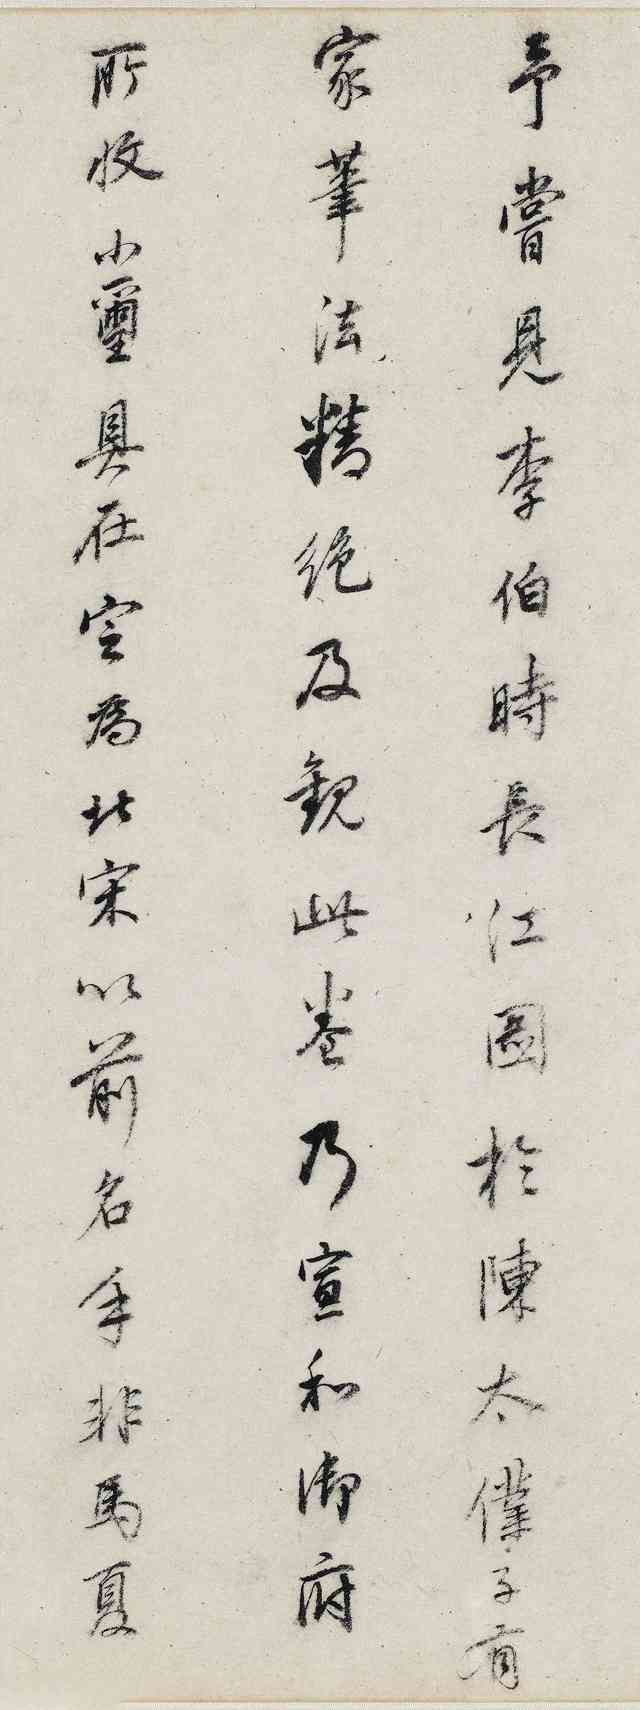 予嘗見李伯時長江圖於陳太僕子有
家筆法精絕及觀此卷乃宣和御府
所收小璽具在定為北宋以前名手非馬夏